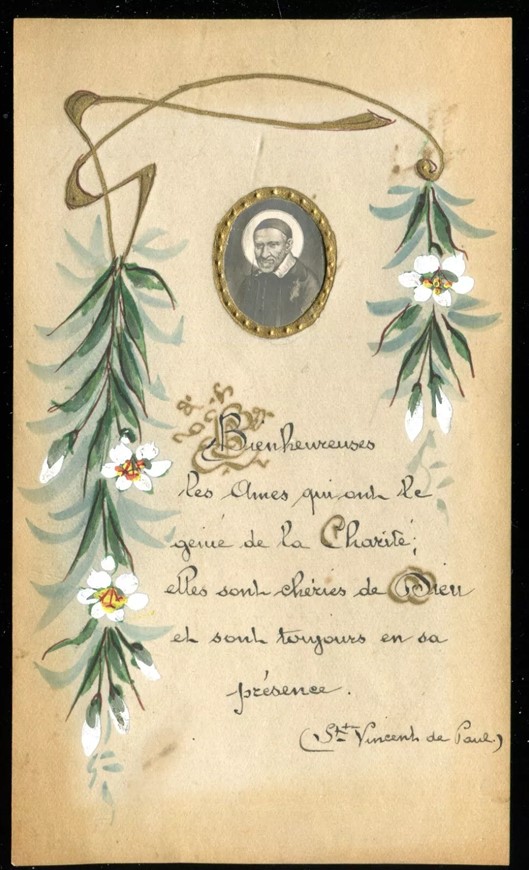 Bienheureuses
les Ames qui ont le
génie de la Charité;
elles sont chéries de Dieu
et sont toujours en sa
présence.
(St Vincent de Paul.)